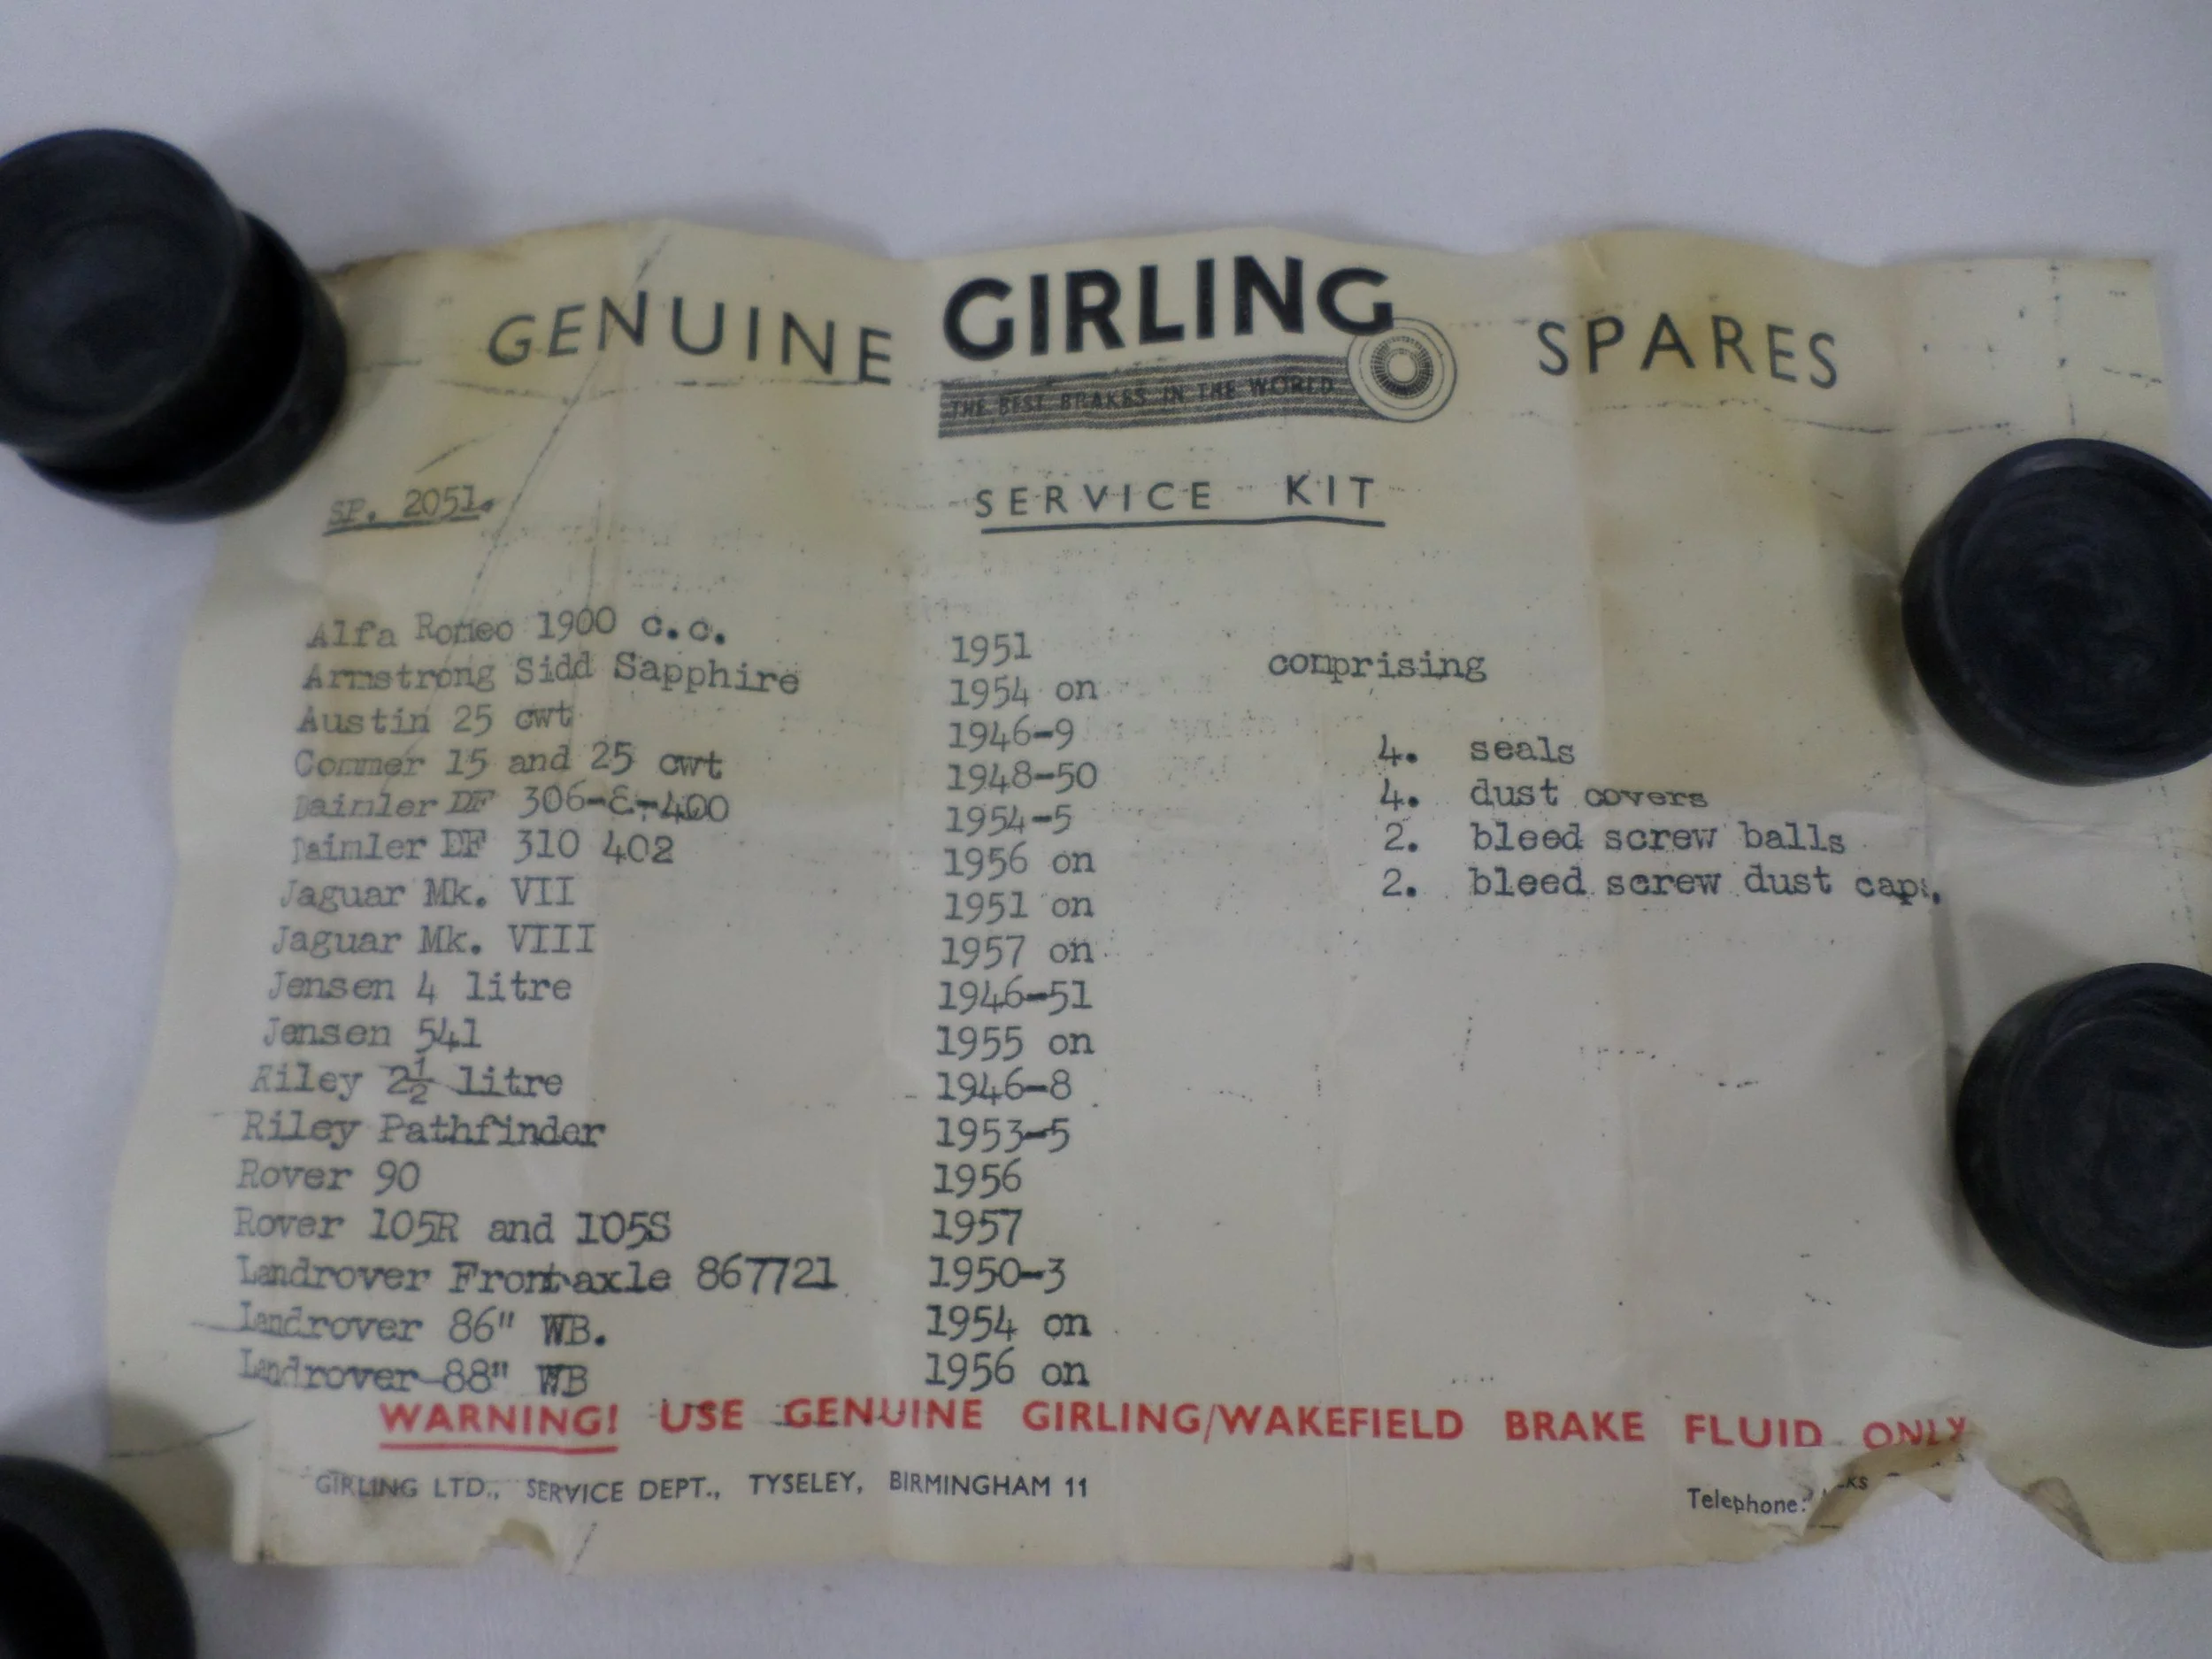 GENUINE GIRLING SPARES
THE BEST BRAKES IN THE WORLD
SP. 2051.
SERVICE KIT
Alfa Romeo 1900 c.c. 1951
Armstrong Sidd Sapphire 1954 on
Austin 25 cwt 1946-9
Commer 15 and 25 cwt 1948-50
Daimler DF 306-&-400 1954-5
Daimler DF 310 402 1956 on
Jaguar Mk. VII 1951 on
Jaguar Mk. VIII 1957 on
Jensen 4 litre 1946-51
Jensen 541 1955 on
Riley 2½ litre 1946-8
Riley Pathfinder 1953-5
Rover 90 1956
Rover 105R and 105S 1957
Landrover Front axle 867721 1950-3
Landrover 86" WB. 1954 on
Landrover 88" WB 1956 on
comprising
4. seals
4. dust covers
2. bleed screw balls
2. bleed screw dust caps.
WARNING! USE GENUINE GIRLING/WAKEFIELD BRAKE FLUID ONLY
GIRLING LTD., SERVICE DEPT., TYSELEY, BIRMINGHAM 11
Telephone: